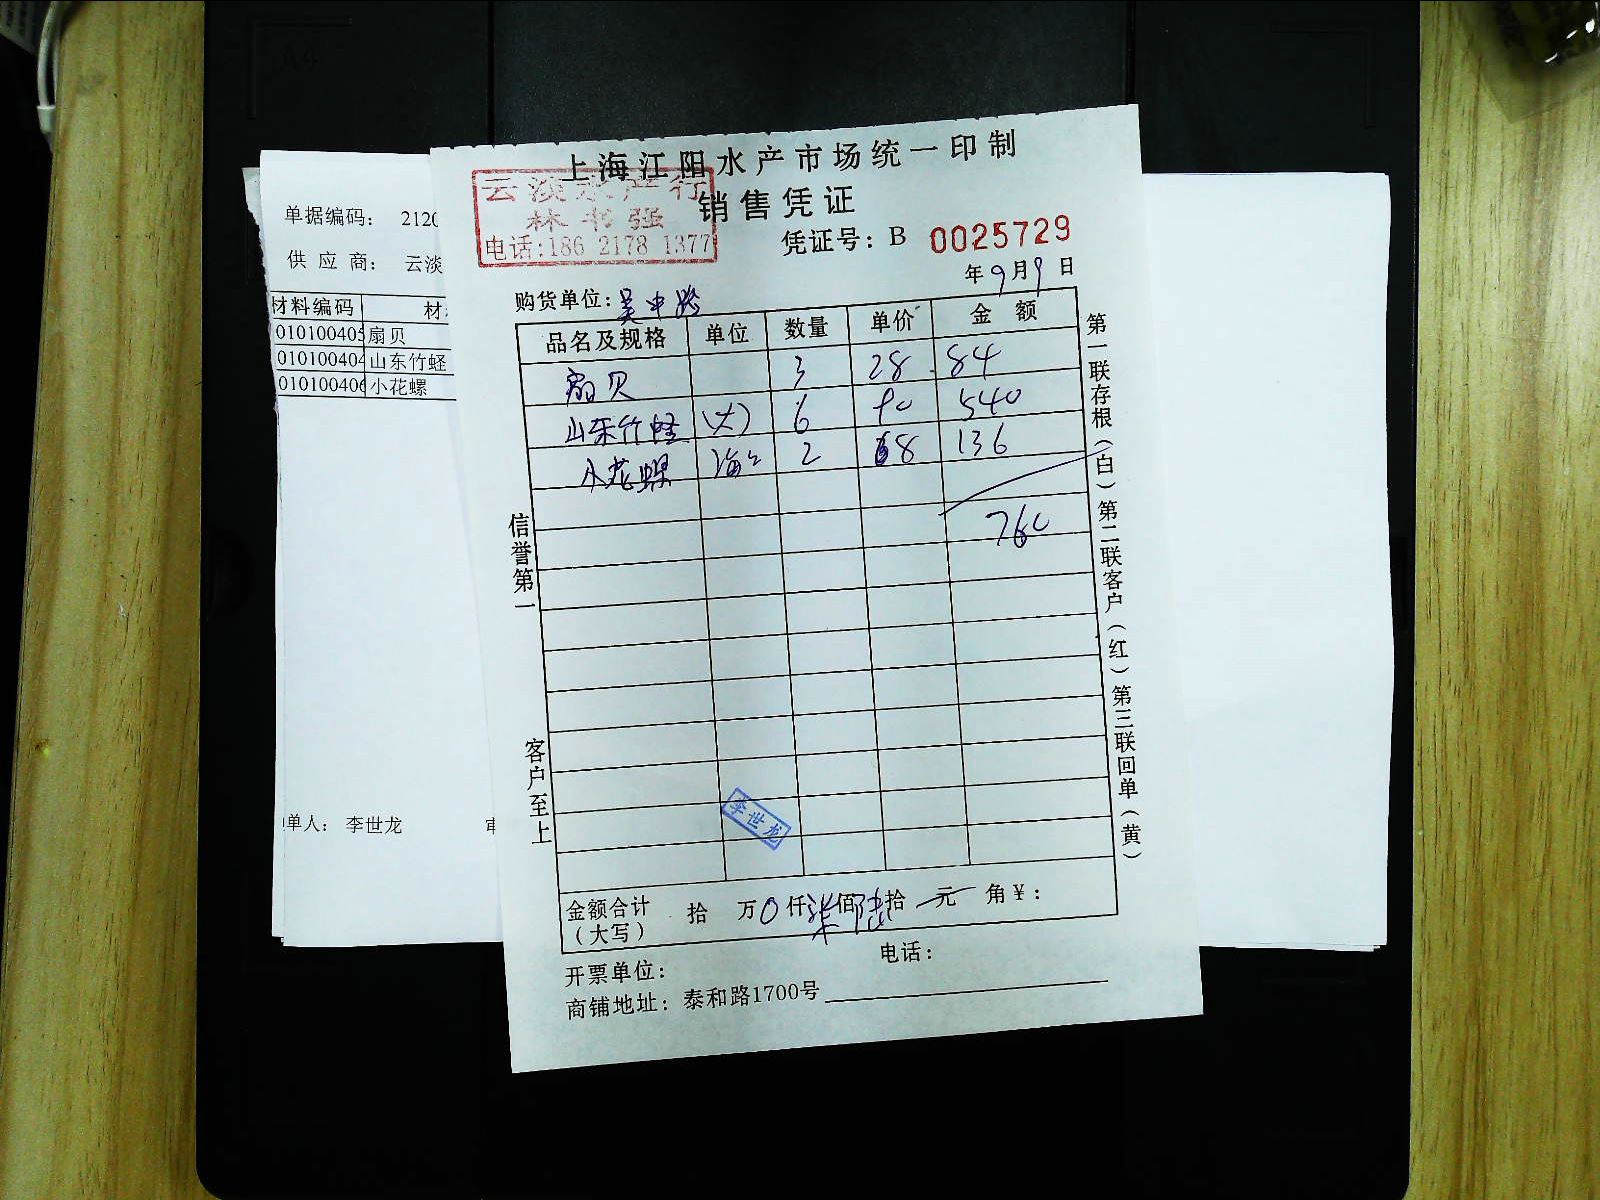 上海江阳水产市场统一印制
销售凭证
云淡水产行
林书强
电话:186 2178 1377
凭证号: B 0025729
年9月9日
购货单位: 吴中路
品名及规格 单位 数量 单价 金额
扇贝 3 28 84
山东竹蛏 (大) 6 90 540
小花螺 2 68 136
760
信誉第一
客户至上
第一联存根(白) 第二联客户(红) 第三联回单(黄)
李世龙
金额合计 拾 万0仟柒佰陆拾 元 角¥:
(大写)
开票单位: 电话:
商铺地址: 泰和路1700号
单据编码: 2120
供应商: 云淡
材料编码 材
010100405 扇贝
010100404 山东竹蛏
010100406 小花螺
单人: 李世龙